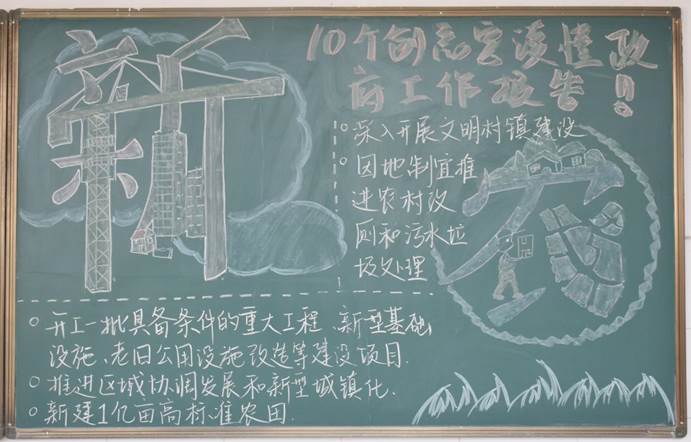 新
10个创意字读懂政
府工作报告！
深入开展文明村镇建设
因地制宜推
进农村改
厕和污水垃
圾处理
农
开工一批具备条件的重大工程、新型基础
设施、老旧公用设施改造等建设项目.
推进区域协调发展和新型城镇化.
新建1亿亩高标准农田.